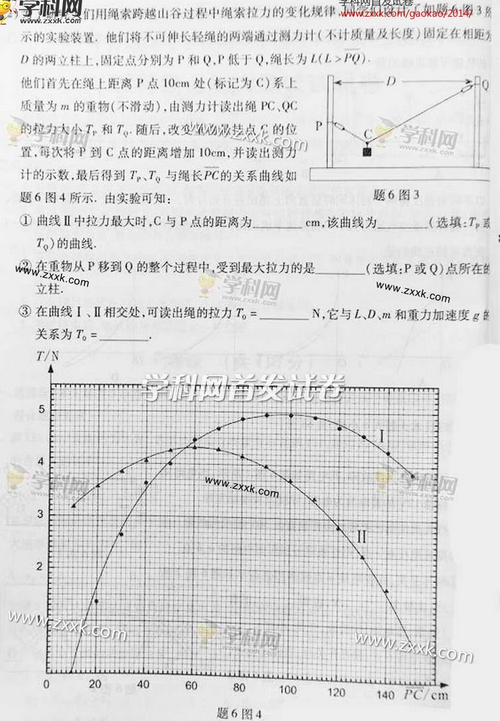 学科网首发试卷
www.zxxk.com/gaokao/2014/
们用绳索跨越山谷过程中绳索拉力的变化规律
示的实验装置. 他们将不可伸长轻绳的两端通过测力计(不计质量及长度)固定在相距为
D的两立柱上,固定点分别为P和Q,P低于Q,绳长为L(L>PQ).
他们首先在绳上距离P点10cm处(标记为C)系上
质量为m的重物(不滑动),由测力计读出绳PC、QC
的拉力大小TP和TQ. 随后,改变重物悬挂点C的位
置,每次将P到C点的距离增加10cm,并读出测力
计的示数,最后得到TP、TQ与绳长PC的关系曲线如
题6图4所示. 由实验可知:
D
Q
P
C
题6图3
① 曲线Ⅱ中拉力最大时,C与P点的距离为______cm,该曲线为______(选填:TP或
TQ)的曲线.
② 在重物从P移到Q的整个过程中,受到最大拉力的是______(选填:P或Q)点所在的
立柱.
③ 在曲线Ⅰ、Ⅱ相交处,可读出绳的拉力T0=______N,它与L、D、m和重力加速度g的
关系为T0=______.
T/N
学科网首发试卷
5
4
3
2
Ⅰ
Ⅱ
0 20 40 60 80 100 120 140 PC/cm
题6图4
学科网
www.zxxk.com
学科网
www.zxxk.com
学科网
www.zxxk.com
学科网
www.zxxk.com
学科网
www.zxxk.com
学科网
www.zxxk.com